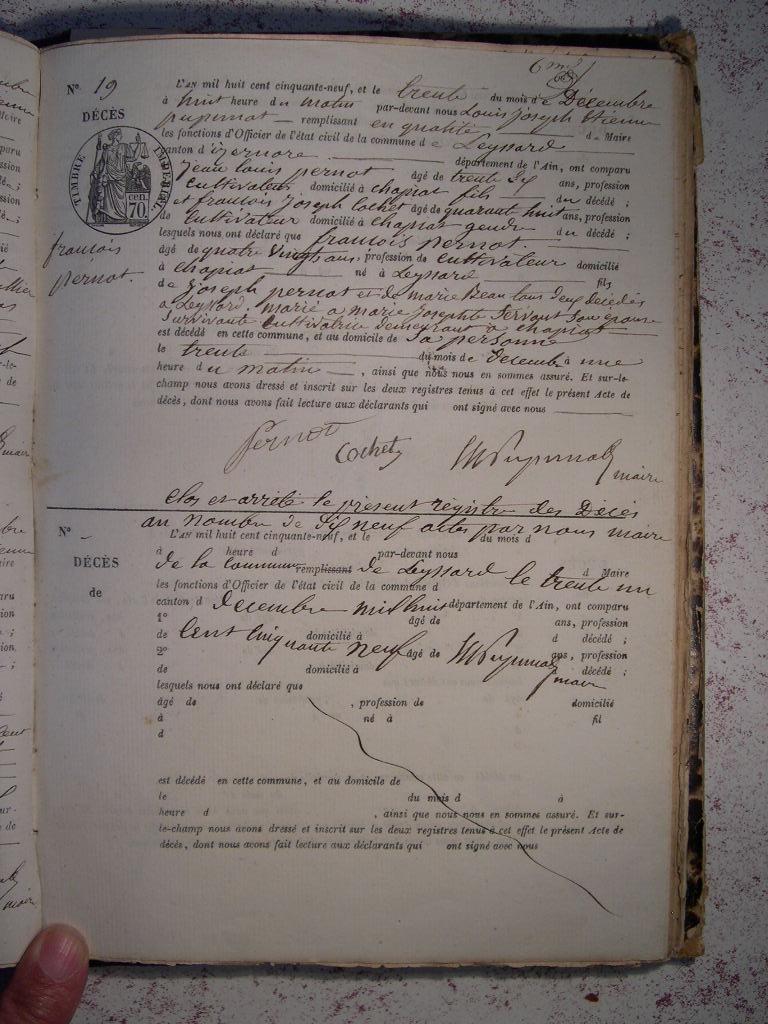 N° 19
DÉCÈS
TIMBRE IMPERIAL
70 cen.
françois
pernot.
L'AN mil huit cent cinquante-neuf, et le trente du mois de Décembre
à huit heure du matin par-devant nous Louis joseph Etienne
pupunat — remplissant en qualité d e Maire
les fonctions d'Officier de l'état civil de la commune d e Leyssard
canton d'izernore département de l'Ain, ont comparu
jean louis pernot âgé de trente six ans, profession
cultivateur domicilié à chapiat fils du décédé ;
et francois joseph Cochet âgé de quarante huit ans, profession
de Cultivateur domicilié à chapiat gendre du décédé ;
lesquels nous ont déclaré que francois pernot.
âgé de quatre vingt ans, profession de cultivateur domicilié
à chapiat né à Leyssard fils
de joseph pernot et de marie Beau tous deux décédés
a Leyssard. marié a marie josephte Servant son epouse
Survivante Cultivatrice demeurant a chapiat
est décédé en cette commune, et au domicile de Sa personne
le trente du mois de decembre à une
heure du matin —, ainsi que nous nous en sommes assuré. Et sur-le-
champ nous avons dressé et inscrit sur les deux registres tenus à cet effet le présent Acte de
décès, dont nous avons fait lecture aux déclarants qui ont signé avec nous
Pernot Cochet Pupunat
maire
Clos et arrêté le présent registre des Décés
au nombre de dix neuf actes par nous maire
N° -
L'AN mil huit cent cinquante-neuf, et le du mois d
à heure d par-devant nous
DÉCÈS
de
de la Commune remplissant de Leyssard le trente un d Maire
les fonctions d'Officier de l'état civil de la commune d
canton d Decembre mil huit département de l'Ain, ont comparu
1° âgé de ans, profession
de Cent Cinquante neuf domicilié à d décédé ;
2° âgé de Pupunat ans, profession
de domicilié à d décédé ;
maire
lesquels nous ont déclaré que
âgé de , profession de domicilié
à né à fil
d
est décédé en cette commune, et au domicile de
le du mois d à
heure d , ainsi que nous nous en sommes assuré. Et sur-
le-champ nous avons dressé et inscrit sur les deux registres tenus à cet effet le présent Acte de
décès, dont nous avons fait lecture aux déclarants qui ont signé avec nous